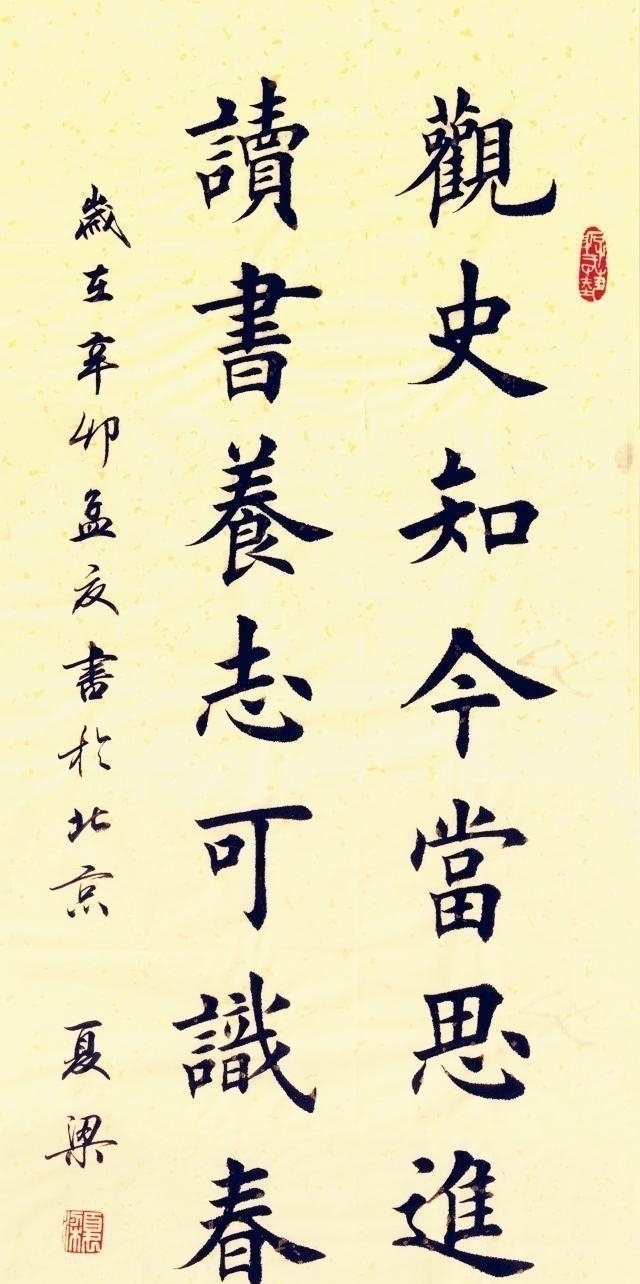 觀史知今當思進
讀書養志可識春
歲在辛卯孟夏書於北京 夏梁
夏梁